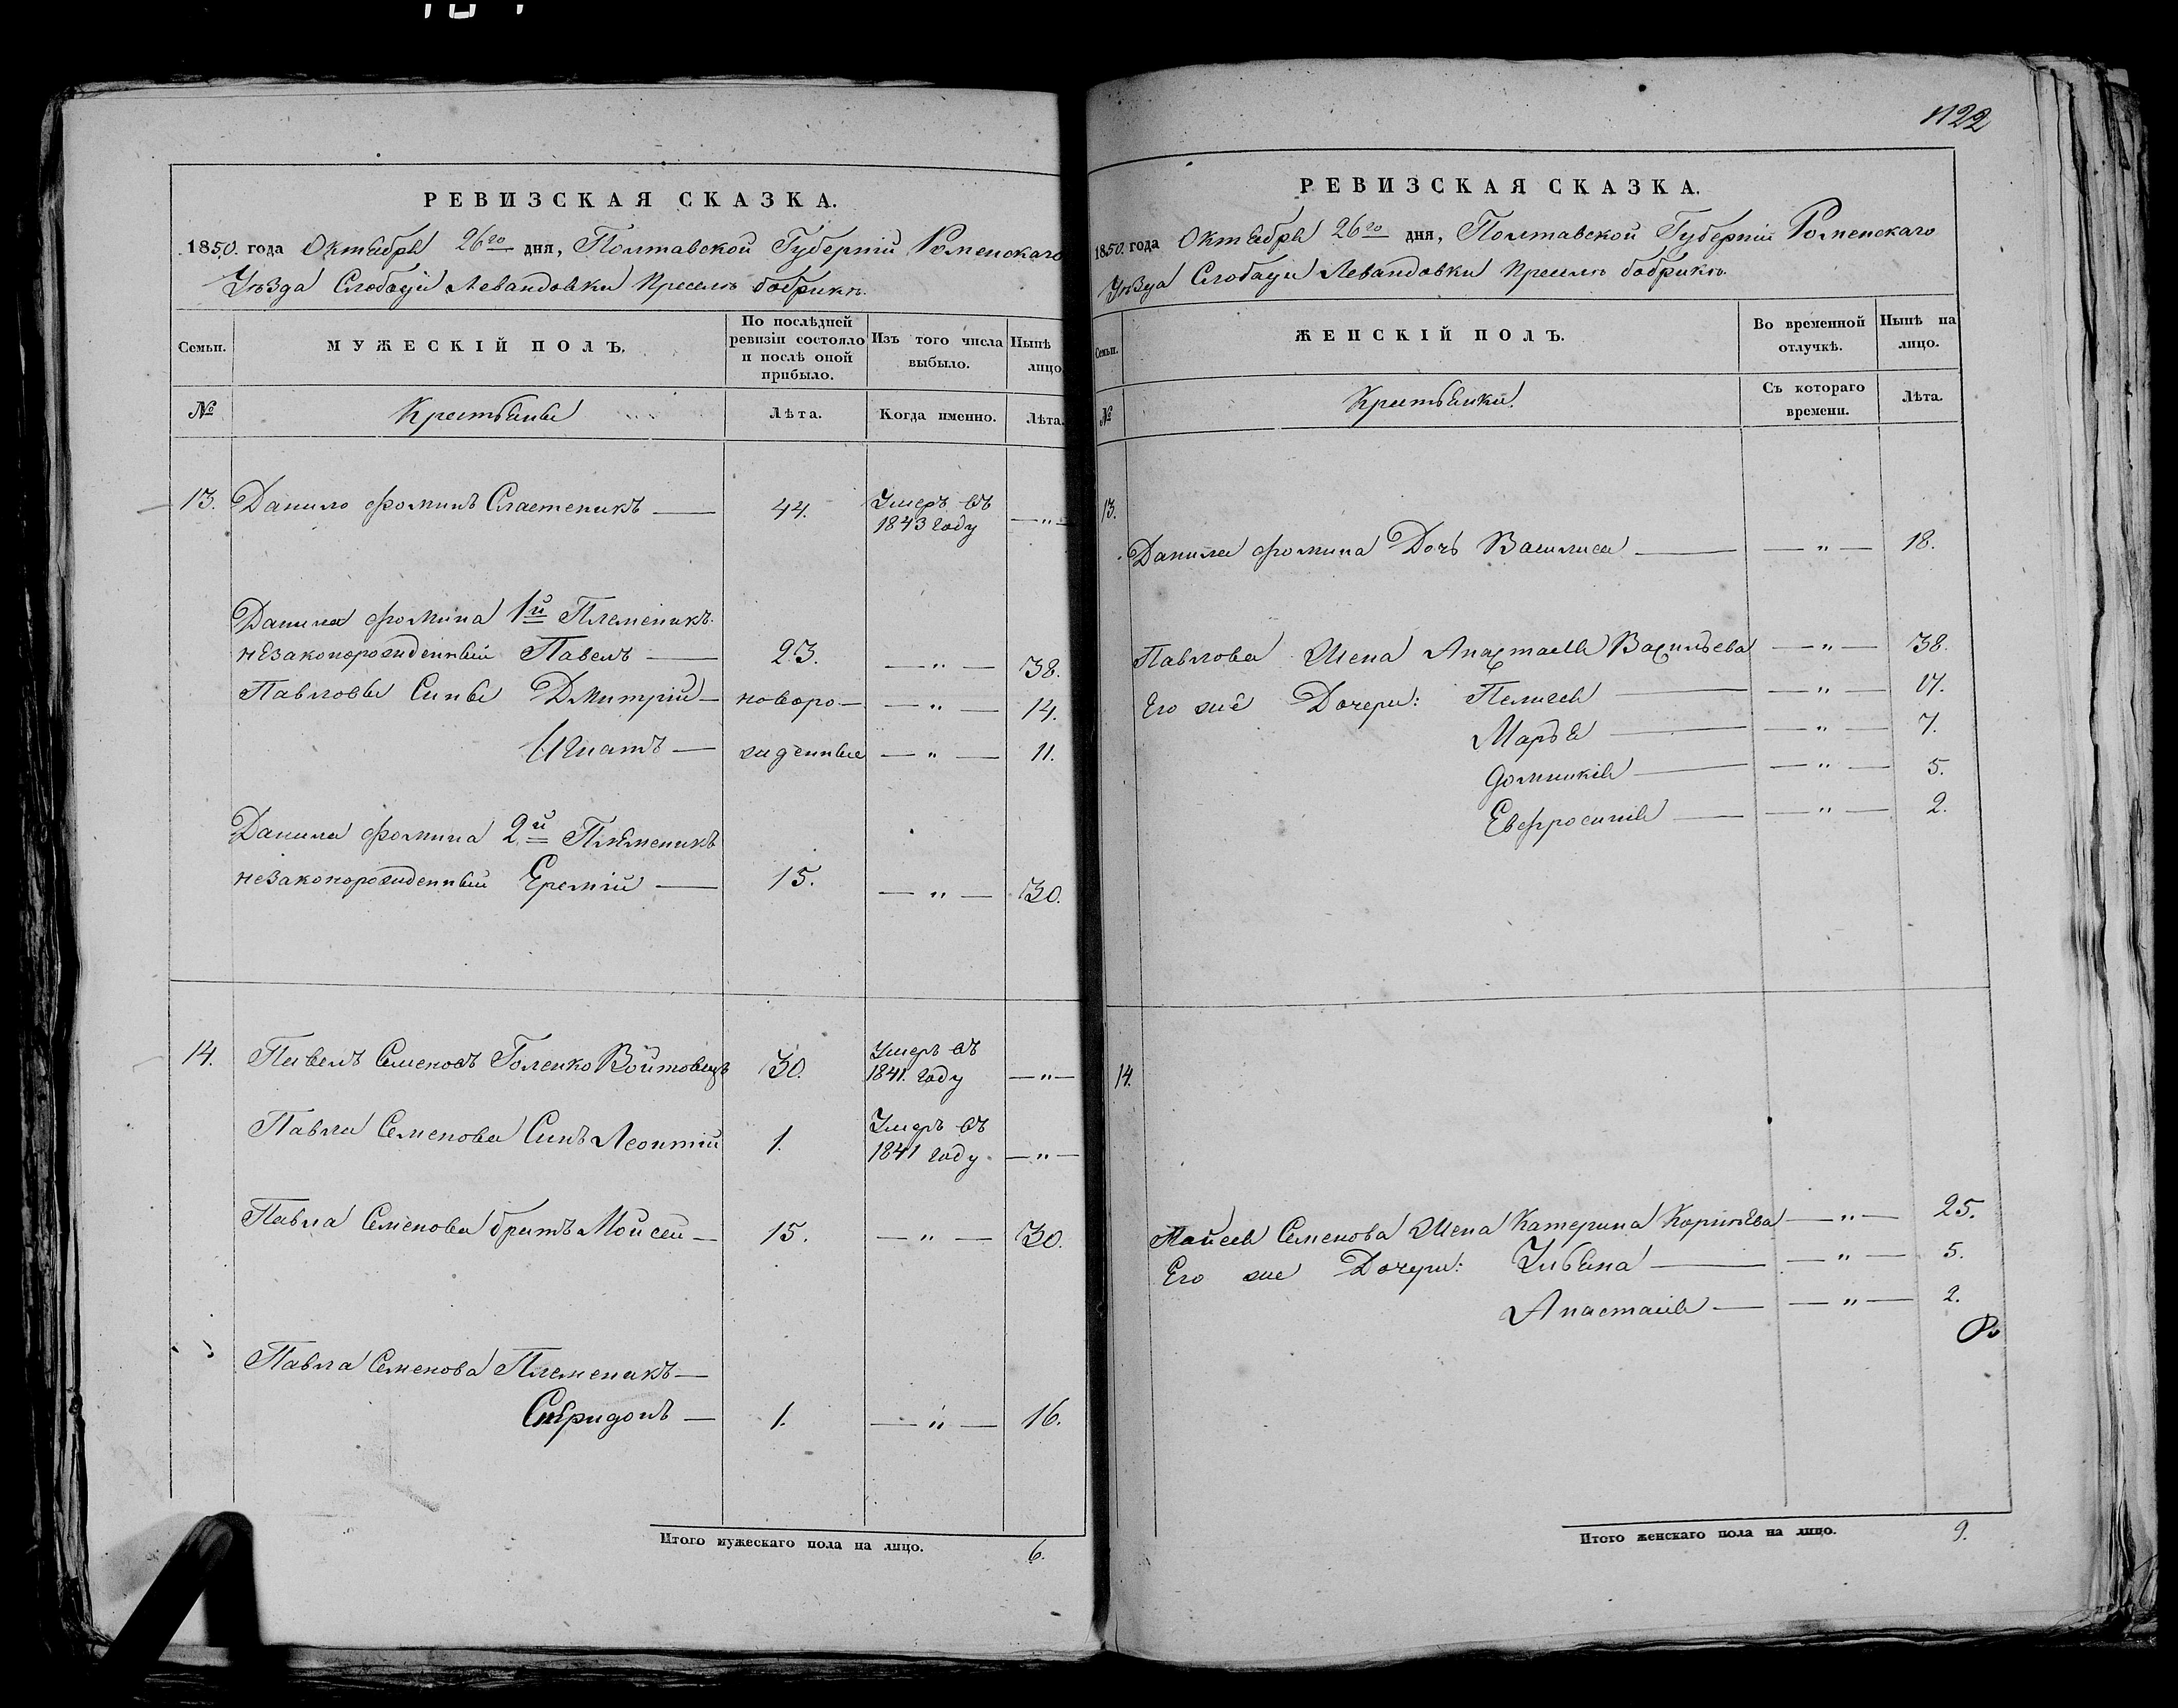 РЕВИЗСКАЯ СКАЗКА.
1850. года Октября 26го дня, Полтавской Губерніи Роменскаго
Уѣзда Слободи Левандовки Приселѣ бобрикѣ.
Семьи.
МУЖЕСКІЙ ПОЛЪ.
По послѣдней ревизіи состояло и послѣ оной прибыло.
Изъ того числа выбыло.
Нынѣ лицо
№
Крестьяне
Лѣта.
Когда именно.
Лѣта.
13. Данило Фоминъ Сластеникъ — 44. Умеръ въ 1843 году — " —
Данила Фомина 1й Племеникъ
незаконорожденный Павелъ — 23. — " — 38.
Павловы Сины Дмитрій — новоро- — " — 14.
Игнатъ — жденные — " — 11.
Данила Фомина 2й Племеникъ
незаконорожденный Еремій — 15. — " — 30.
14. Павелъ Семеновъ Голенко Войтовецъ 30. Умеръ въ 1841. году — " —
Павла Семенова Синъ Леонтій 1. Умеръ въ 1841 году — " —
Павла Семенова братъ Мойсей — 15. — " — 30.
Павла Семенова Племеникъ —
Спиридонъ — 1. — " — 16.
Итого мужескаго пола на лицо. 6.
1122
РЕВИЗСКАЯ СКАЗКА.
1850. года Октября 26го дня, Полтавской Губерніи Роменскаго
Уѣзда Слободи Левандовки Приселѣ бобрикѣ.
Семьи.
ЖЕНСКІЙ ПОЛЪ.
Во временной отлучкѣ.
Нынѣ на лицо.
№
Крестьянки.
Съ котораго времени.
Лѣта.
13.
Данила Фомина Дочь Василиса — — " — 18.
Павлова Жена Анастасія Васильева — " — 38.
Его же Дочери: Пелагея — — " — 17.
Марья — — " — 7.
Домникія — — " — 5.
Евфросинія — — " — 2.
14.
Мойсея Семенова Жена Катерина Корнѣева — " — 25.
Его же Дочери: Ульяна — — " — 5.
Анастасія — — " — 2.
Итого женскаго пола на лицо. 9.